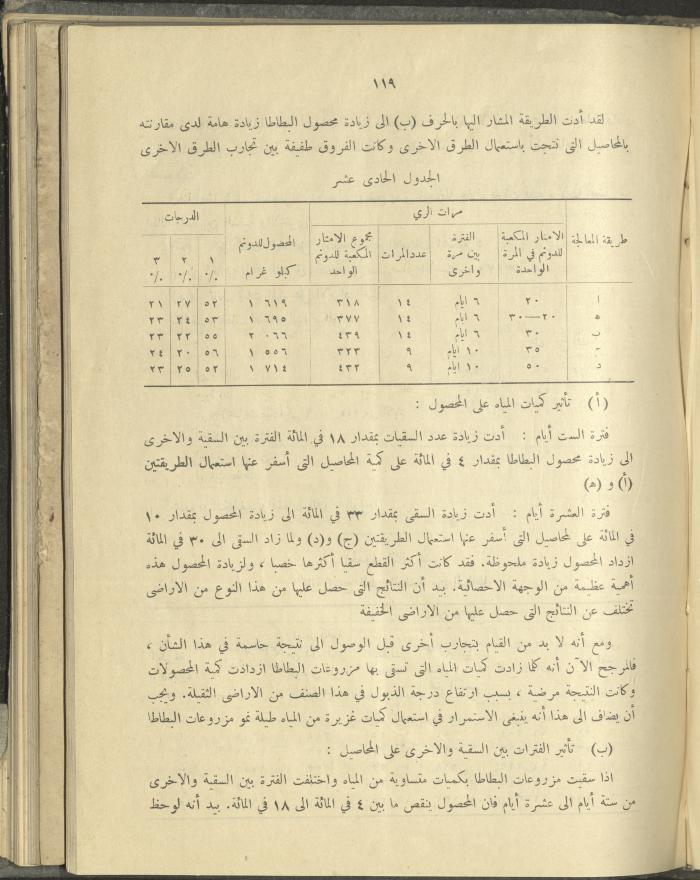 ١١٩
لقد أدت الطريقة المشار اليها بالحرف (ب) الى زيادة محصول البطاطا زيادة هامة لدى مقارنته
بالمحاصيل التى نتجت باستعمال الطرق الاخرى وكانت الفروق طفيفة بين تجارب الطرق الاخرى
الجدول الحادى عشر
مرات الري الدرجات
طريقة المعالجة الامتار المكعبة للدونم في المرة الواحدة الفترة بين مرة واخرى عدد المرات مجموع الامتار المكعبة للدونم الواحد المحصول للدونم كيلو غرام ١ ./° ٢ ./° ٣ ./°
ا ٢٠ ٦ ايام ١٤ ٣١٨ ٦١٩ ١ ٥٢ ٢٧ ٢١
ه ٢٠—٣٠ ٦ ايام ١٤ ٣٧٧ ٦٩٥ ١ ٥٣ ٢٤ ٢٣
ب ٣٠ ٦ ايام ١٤ ٤٣٩ ٠٦٦ ٢ ٥٥ ٢٢ ٢٣
ج ٣٥ ١٠ ايام ٩ ٣٢٣ ٥٥٦ ١ ٥٦ ٢٠ ٢٤
د ٥٠ ١٠ ايام ٩ ٤٣٢ ٧١٤ ١ ٥٢ ٢٥ ٢٣
(أ) تأثير كميات المياه على المحصول :
فترة الست أيام : أدت زيادة عدد السقيات بمقدار ١٨ في المائة الفترة بين السقية والاخرى
الى زيادة محصول البطاطا بمقدار ٤ في المائة على كمية المحاصيل التى أسفر عنها استعمال الطريقتين
(أ) و (ه)
فترة العشرة أيام : أدت زيادة السقى بمقدار ٣٣ في المائة الى زيادة المحصول بمقدار ١٠
في المائة على لمحاصيل التى أسفر عنها استعمال الطريقتين (ج) و(د) ولما زاد السقى الى ٣٠ في المائة
ازداد المحصول زيادة ملحوظة. فقد كانت أكثر القطع سقيا أكثرها خصبا ، ولزيادة المحصول هذه
أهمية عظيمة من الوجهة الاحصائية. بيد أن النتائج التى حصل عليها من هذا النوع من الاراضى
تختلف عن النتائج التى حصل عليها من الاراضى الخفيفة
ومع أنه لا بد من القيام بتجارب أخرى قبل الوصول الى نتيجة حاسمة في هذا الشأن ،
فالمرجح الآن أنه كلما زادت كميات المياه التى تسقى بها مزروعات البطاطا ازدادت كمية المحصولات
وكانت النتيجة مرضية ، بسبب ارتفاع درجة الذبول في هذا الصنف من الاراضى الثقيلة. ويجب
أن يضاف الى هذا أنه ينبغى الاستمرار في استعمال كميات غزيرة من المياه طيلة نمو مزروعات البطاطا
(ب) تأثير الفترات بين السقية والاخرى على المحاصيل :
اذا سقيت مزروعات البطاطا بكميات متساوية من المياه واختلفت الفترة بين السقية والاخرى
من ستة أيام الى عشرة أيام فان المحصول ينقص ما بين ٤ في المائة الى ١٨ في المائة. بيد أنه لوحظ